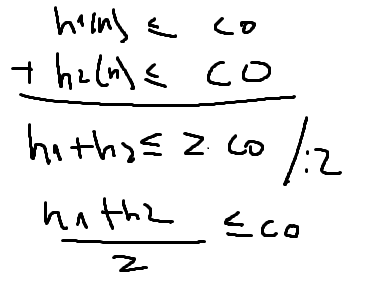 h1(n) ≤ co
+ h2(n) ≤ CO
h1+h2 ≤ 2·co /:2
h1+h2
2
≤ co